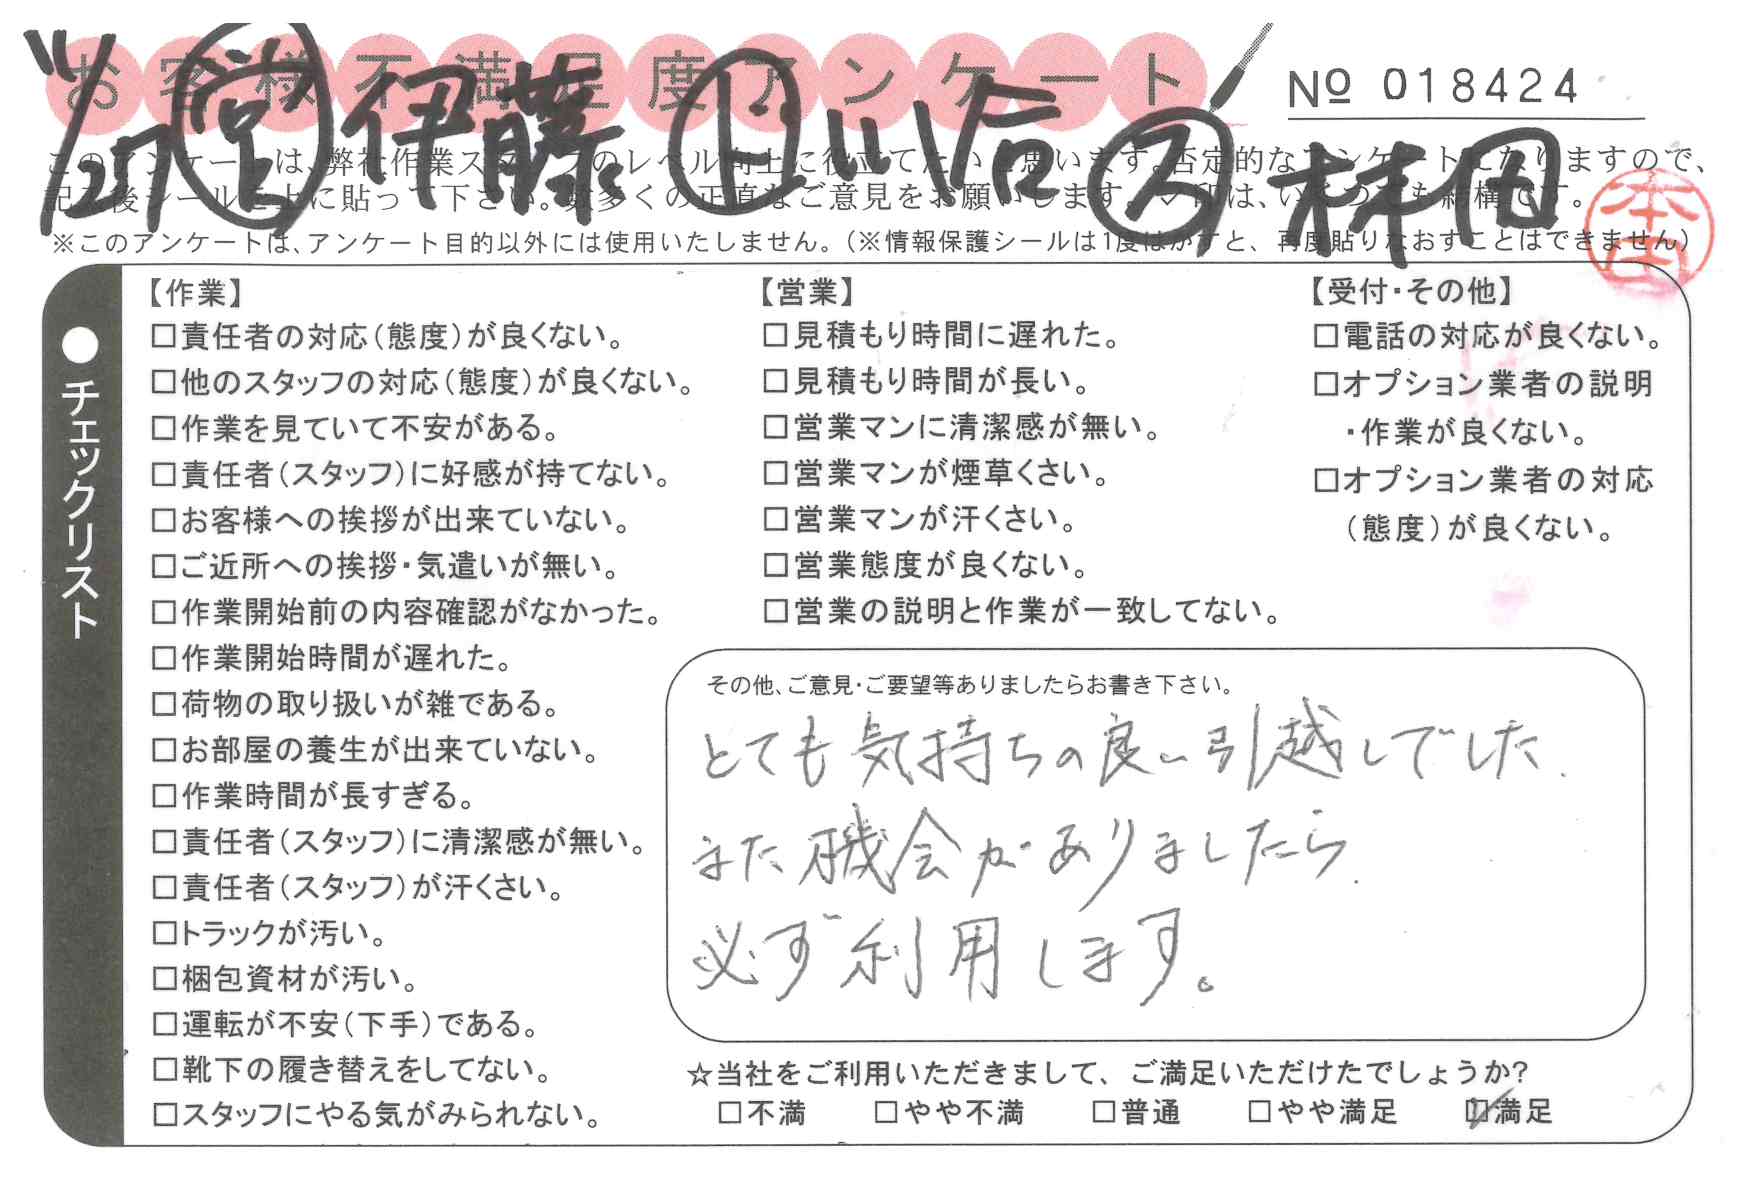 お客様不満足度アンケート
№ 018424
11/27 営 伊藤 上 川合 ス 林田
このアンケートは、弊社作業スタッフのレベル向上に役立てたいと思います。否定的なアンケートになりますので、
記入後シールを上に貼って下さい。数多くの正直なご意見をお願いします。✓印は、いくつでも結構です。
※このアンケートは、アンケート目的以外には使用いたしません。(※情報保護シールは1度はがすと、再度貼りなおすことはできません)
●チェックリスト
【作業】
□責任者の対応(態度)が良くない。
□他のスタッフの対応(態度)が良くない。
□作業を見ていて不安がある。
□責任者(スタッフ)に好感が持てない。
□お客様への挨拶が出来ていない。
□ご近所への挨拶・気遣いが無い。
□作業開始前の内容確認がなかった。
□作業開始時間が遅れた。
□荷物の取り扱いが雑である。
□お部屋の養生が出来ていない。
□作業時間が長すぎる。
□責任者(スタッフ)に清潔感が無い。
□責任者(スタッフ)が汗くさい。
□トラックが汚い。
□梱包資材が汚い。
□運転が不安(下手)である。
□靴下の履き替えをしてない。
□スタッフにやる気がみられない。
【営業】
□見積もり時間に遅れた。
□見積もり時間が長い。
□営業マンに清潔感が無い。
□営業マンが煙草くさい。
□営業マンが汗くさい。
□営業態度が良くない。
□営業の説明と作業が一致してない。
【受付・その他】
□電話の対応が良くない。
□オプション業者の説明
・作業が良くない。
□オプション業者の対応
(態度)が良くない。
その他、ご意見・ご要望等ありましたらお書き下さい。
とても気持ちの良い引越しでした.
また機会がありましたら.
必ず利用します。
☆当社をご利用いただきまして、ご満足いただけたでしょうか?
□不満 □やや不満 □普通 □やや満足 ☑満足